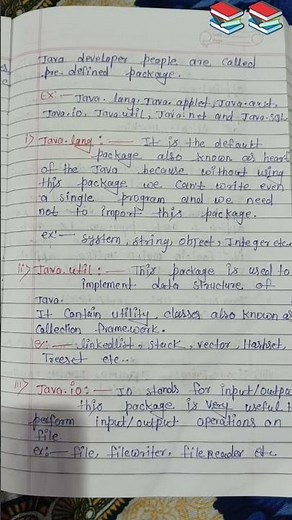 Java developer people are called
pre-defined package.
Ex:- Java. lang, Java.applet, Java.awt,
Java.io. Java.util, Java.net and Java.sql
i) Java.lang :- It is the default
package also known as heart
of the Java because without using
this package we can't write even
a single program and we need
not to import this package.
ex:- system, string, object, Integer etc.
ii) Java.util :- This package is used to
implement data structure of
Java.
It Contain utility classes also known as
Collection framework.
linkedlist, stack, vector, Hashset,
Treeset etc..
iii) Java.io :- IO stands for input/outpu
this package is very useful t
perform input/output operations on
file
ex:- file, filewriter, fileReader etc